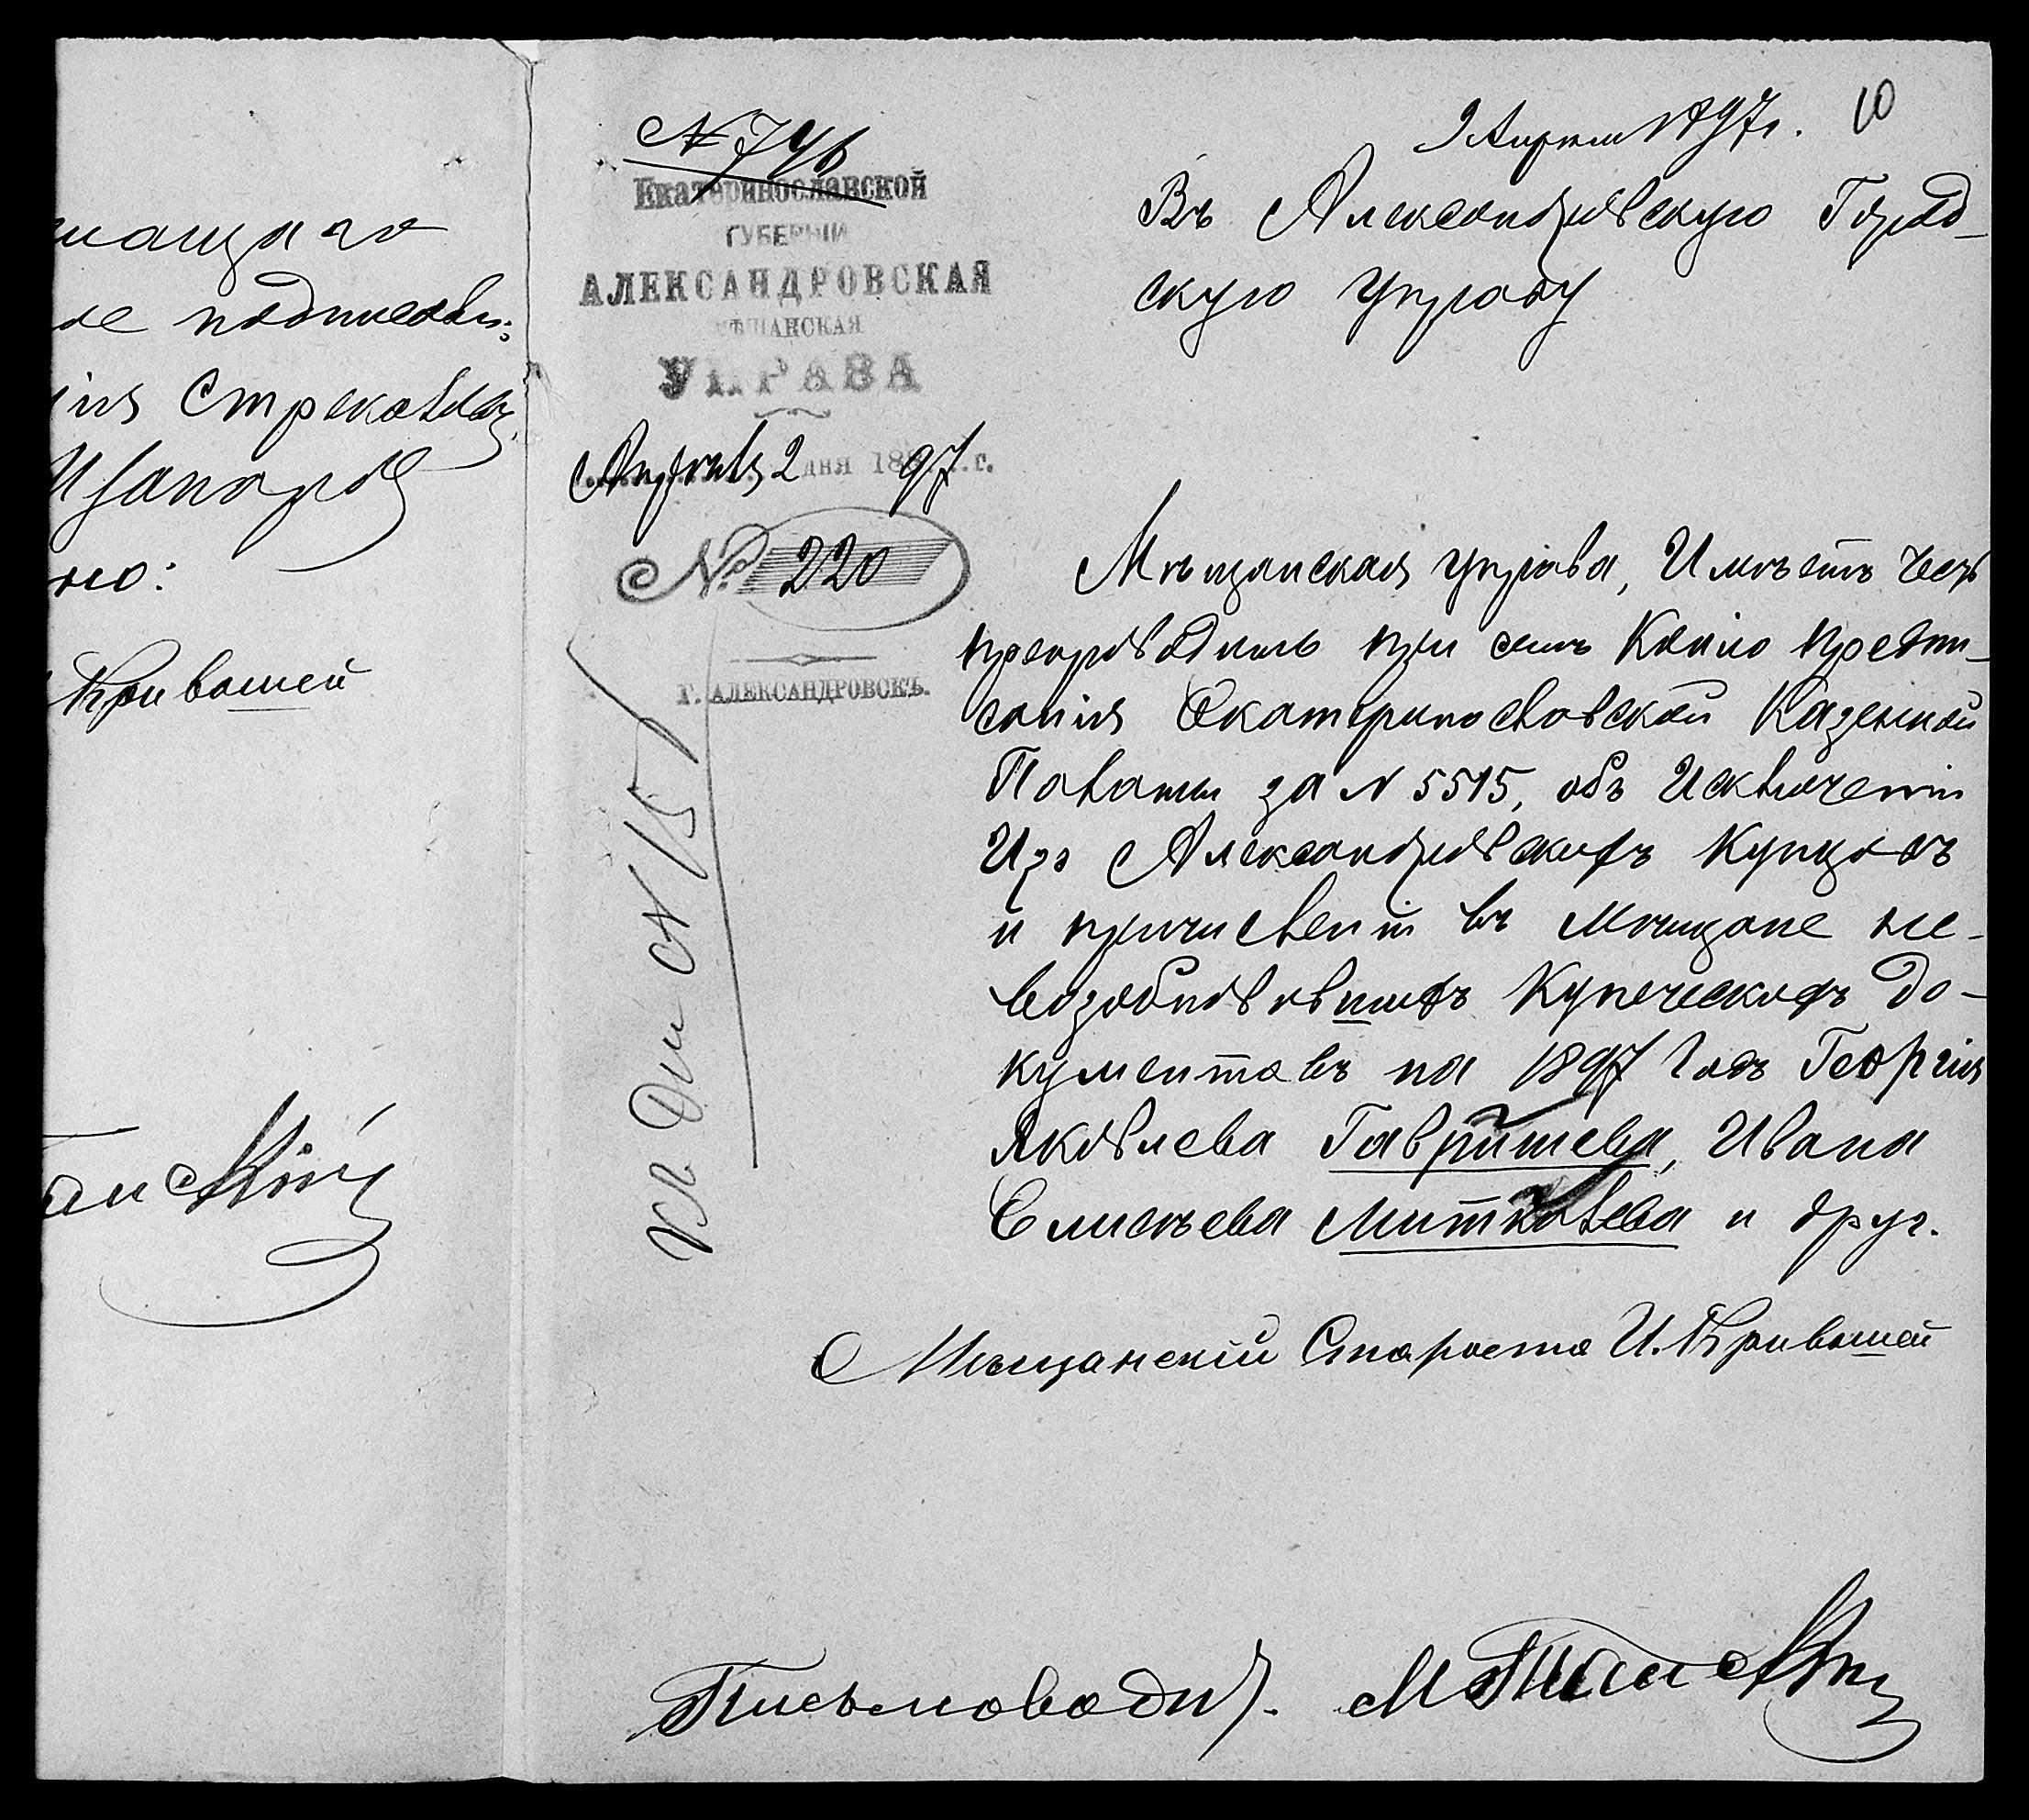 нащаго
ое подписавъ:
нія Стрековъ
но:
Кривошей
№ 746
Екатеринославской
ГУБЕРНІИ
АЛЕКСАНДРОВСКАЯ
МѢЩАНСКАЯ
УПРАВА
Апрѣля 2 дня 1897 г.
№ 220
г. АЛЕКСАНДРОВСКЪ.
Къ Дѣлу № 15
10
2 Апрѣля 1897 г.
Въ Александровскую Город-
скую Управу
Мѣщанская управа, Имѣетъ честь
препроводить при семъ Копію предпи-
санія Екатеринославской Казенной
Палаты за № 5515, объ Исключеніи
Изъ Александровскихъ Купцовъ
и причисленіи въ Мѣщане не-
возобновившихъ Купеческихъ до-
кументовъ на 1897 Годъ Георгія
Яковлева Гавришева, Ивана
Елисѣева Митковева и друг.
Мѣщанскій Староста И. Кривошей
Письмоводит.